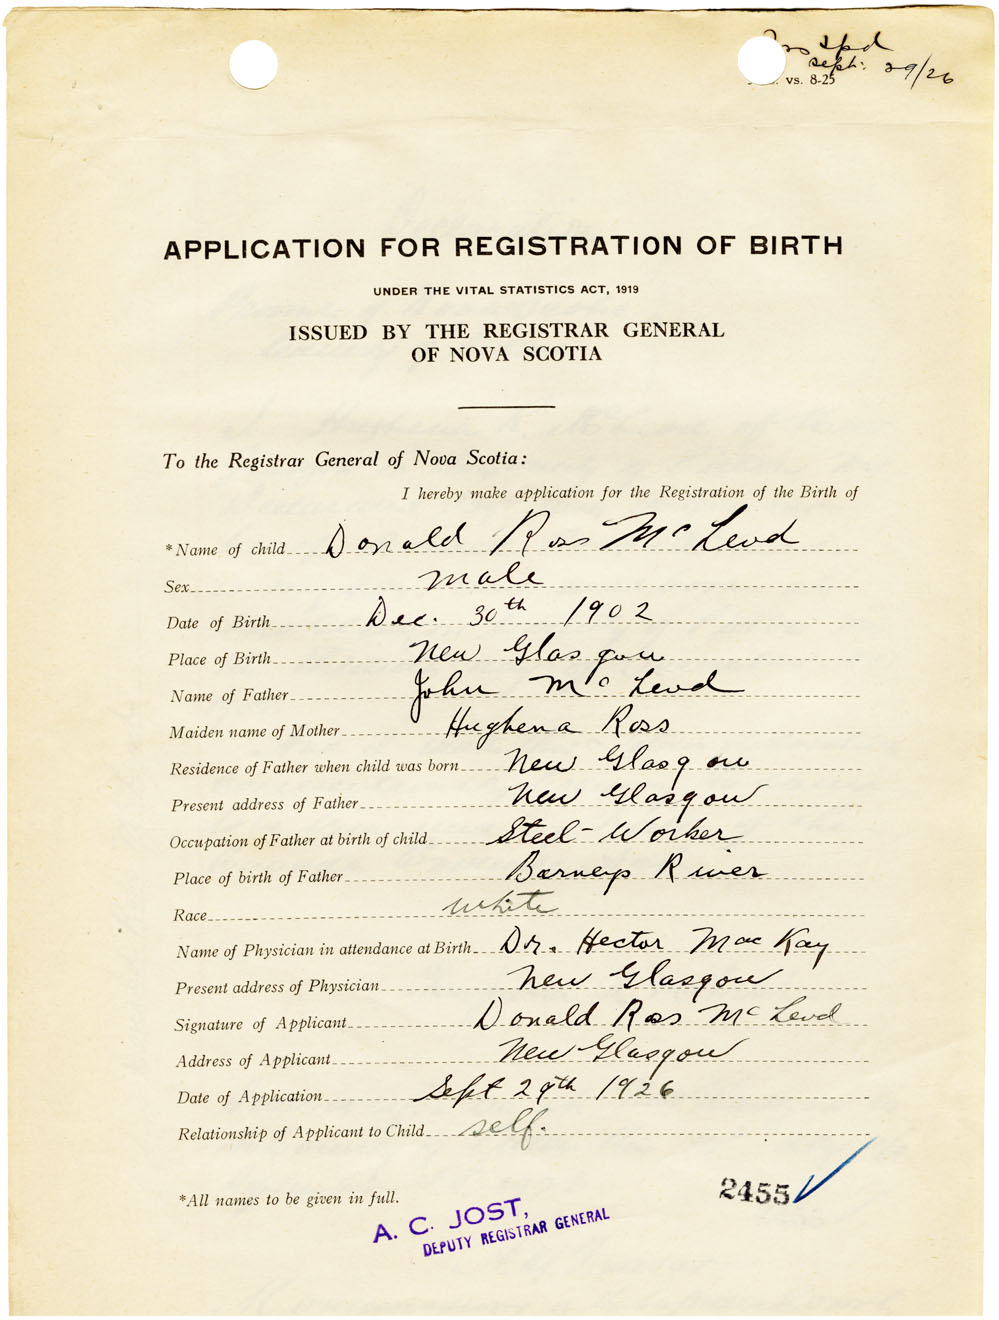 Sept. 29/26
vs. 8-25
APPLICATION FOR REGISTRATION OF BIRTH
UNDER THE VITAL STATISTICS ACT, 1919
ISSUED BY THE REGISTRAR GENERAL
OF NOVA SCOTIA
To the Registrar General of Nova Scotia:
I hereby make application for the Registration of the Birth of
*Name of child Donald Ross McLeod
Sex male
Date of Birth Dec. 30th 1902
Place of Birth New Glasgow
Name of Father John McLeod
Maiden name of Mother Hughena Ross
Residence of Father when child was born New Glasgow
Present address of Father New Glasgow
Occupation of Father at birth of child Steel-Worker
Place of birth of Father Barneys River
Race white
Name of Physician in attendance at Birth Dr. Hector MacKay
Present address of Physician New Glasgow
Signature of Applicant Donald Ross McLeod
Address of Applicant New Glasgow
Date of Application Sept 29th 1926
Relationship of Applicant to Child self.
*All names to be given in full.
2455
A. C. JOST,
DEPUTY REGISTRAR GENERAL